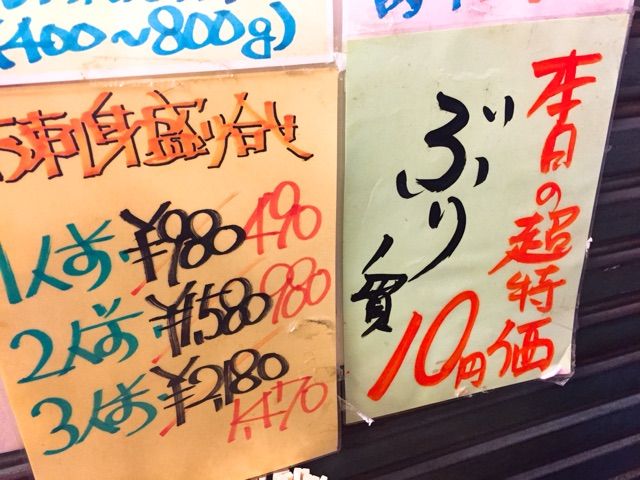 (400~800g)
お刺身盛り合せ
1人前 ¥980 490
2人前 ¥1,580 980
3人前 ¥2,180 1,470
本日の超特価
ぶり
一貫
10円